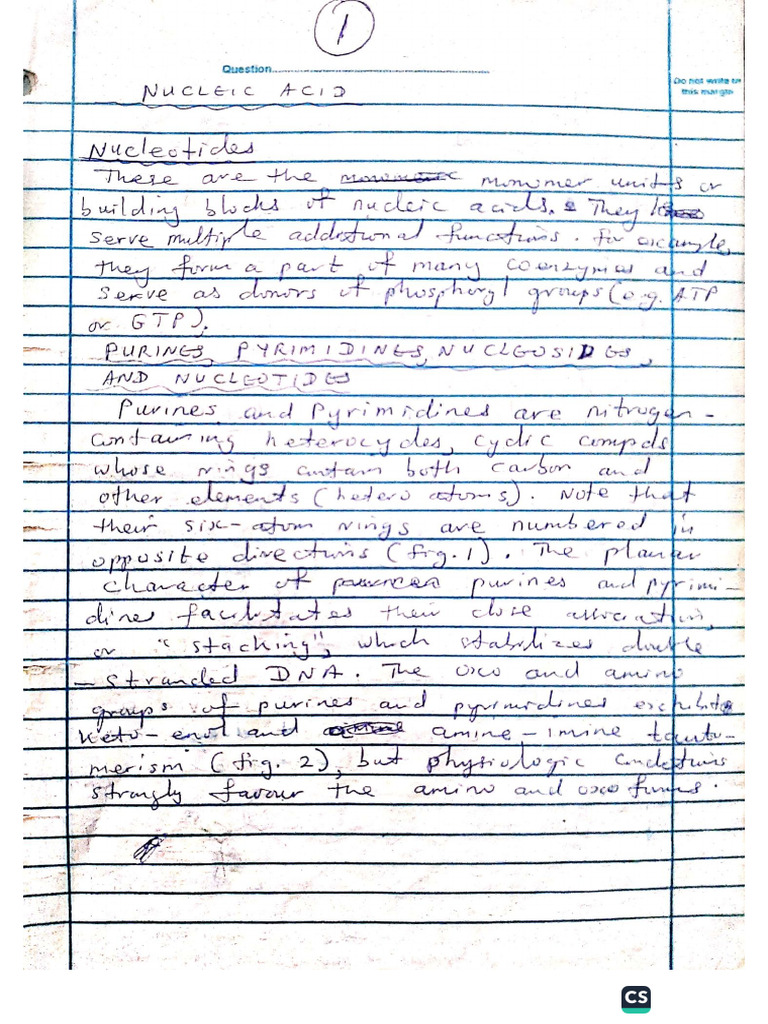 1
Question
Do not write in
this margin
NUCLEIC ACID
Nucleotides
These are the monomer units or
building blocks of nucleic acids. They
serve multiple additional functions. For example,
they form a part of many coenzymes and
serve as donors of phosphoryl groups (e.g. ATP
or GTP).
PURINES, PYRIMIDINES, NUCLEOSIDES,
AND NUCLEOTIDES
Purines and Pyrimidines are nitrogen-
containing heterocycles, cyclic compds
whose rings contain both carbon and
other elements (hetero atoms). Note that
their six-atom rings are numbered in
opposite directions (fig. 1). The planar
character of purines and pyrimi-
dines facilitates their close association,
or "stacking", which stabilizes double
- stranded DNA. The oxo and amino
groups of purines and pyrimidines exhibit
keto-enol and amine-imine tauto-
merism (fig. 2), but physiologic conditions
strongly favour the amino and oxo forms.
CS